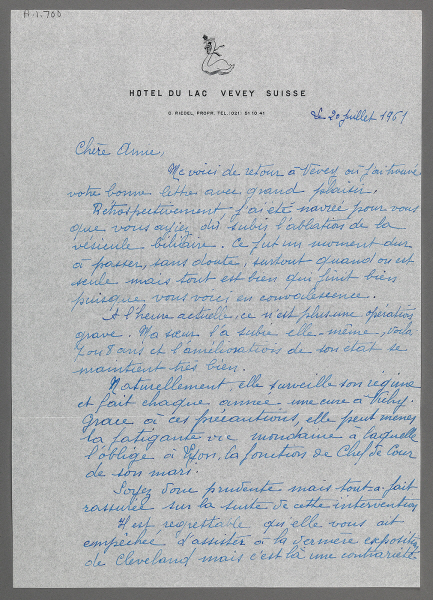 A.1.700
HOTEL DU LAC VEVEY SUISSE
O. RIEDEL, PROPR. TEL. (021) 51 10 41
Le 20 juillet 1961
Chère Anne,
Me voici de retour à Vevey où j'ai trouvé
votre bonne lettre avec grand plaisir.
Rétrospectivement, j'ai été navrée pour vous
que vous ayiez dû subir l'ablation de la
vésicule biliaire. Ce fut un moment dur
à passer, sans doute, surtout quand on est
seule mais tout est bien qui finit bien
puisque vous voici en convalescence.
A l'heure actuelle, ce n'est plus une opération
grave. Ma sœur l'a subie elle-même, voilà
7 ou 8 ans et l'amélioration de son état se
maintient très bien.
Naturellement, elle surveille son régime
et fait chaque année une cure à Vichy.
Grâce à ces précautions, elle peut mener
la fatigante vie mondaine à laquelle
l'oblige à Lyon, la fonction de Chef de Cour
de son mari.
Soyez donc prudente mais tout-à-fait
rassurée sur la suite de cette intervention
Il est regrettable qu'elle vous ait
empêchée d'assister à la dernière exposition
de Cleveland mais c'est là une contrariété